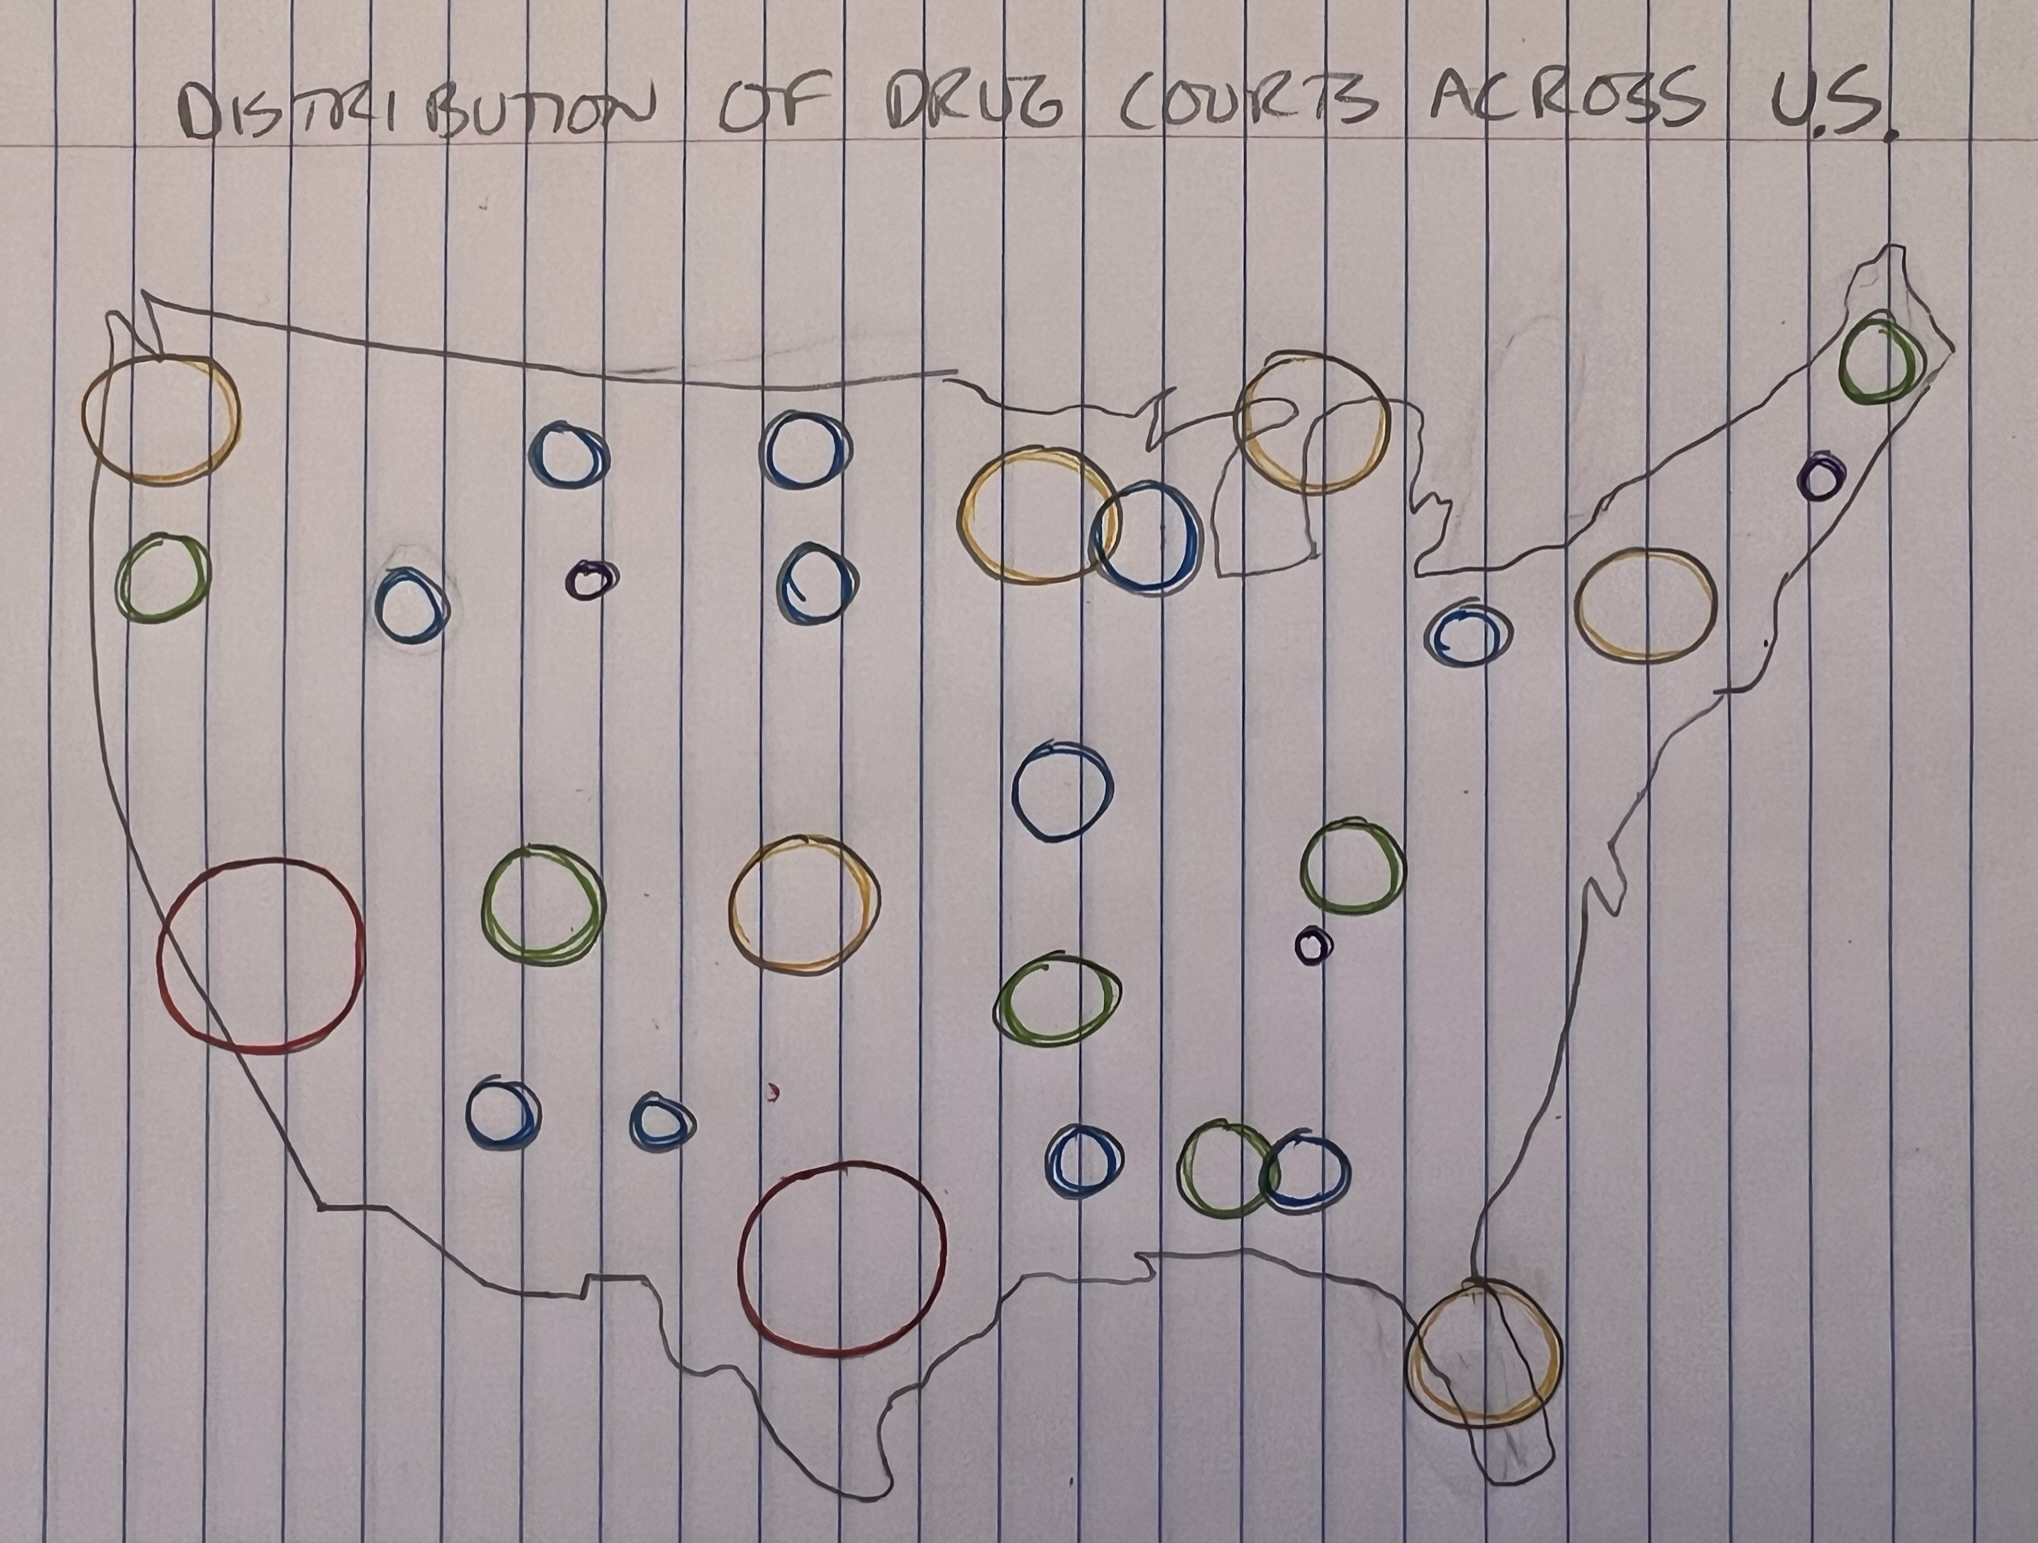 DISTRIBUTION OF DRUG COURTS ACROSS U.S.